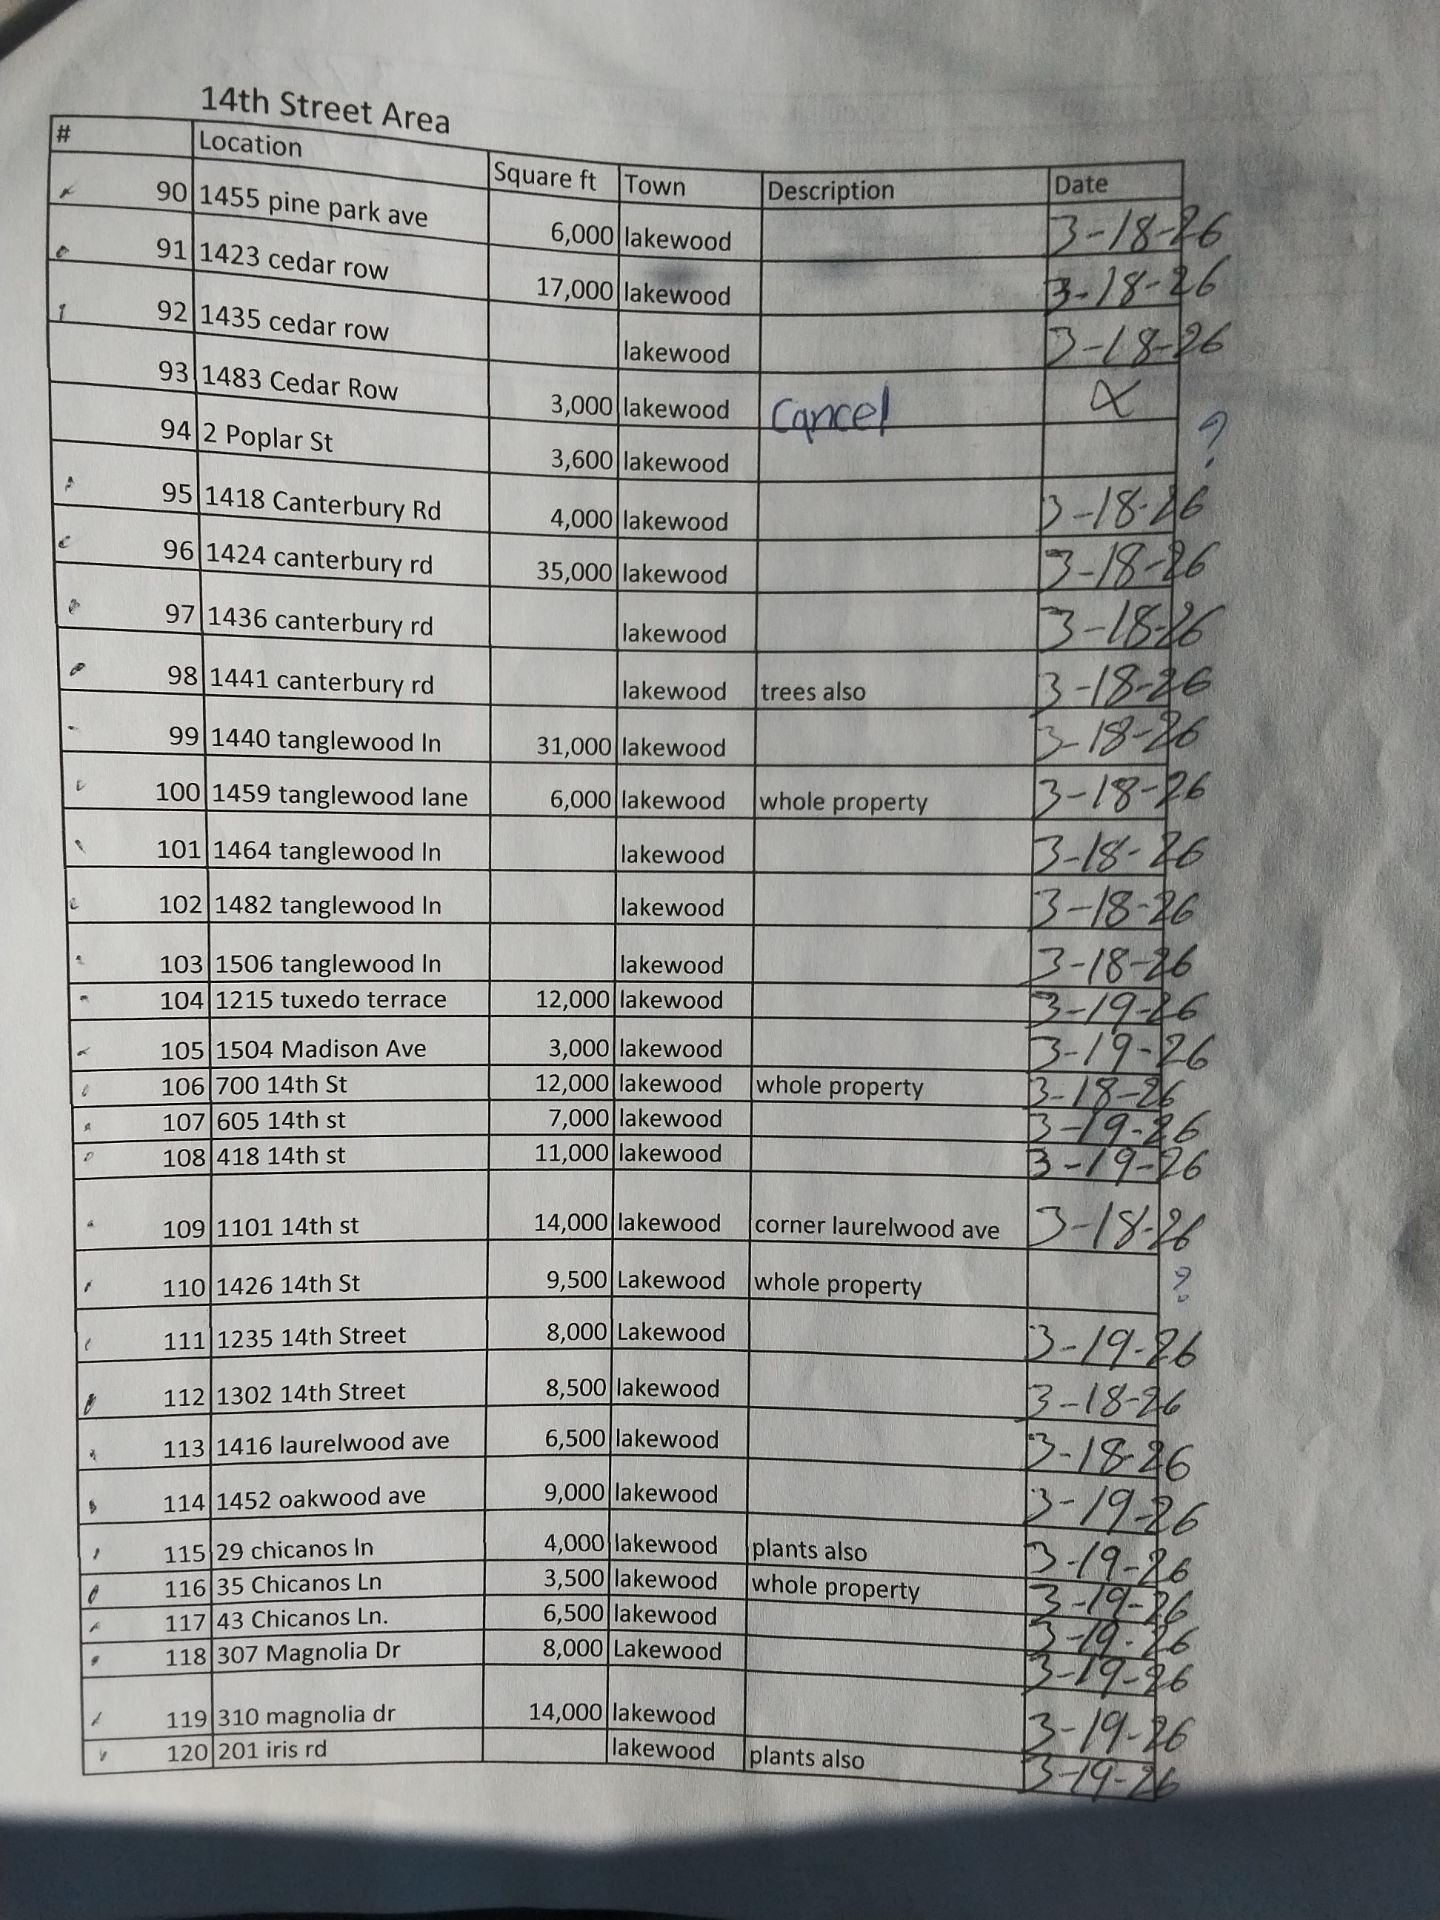 14th Street Area
# Location Square ft Town Description Date
90 1455 pine park ave 6,000 lakewood 3-18-26
91 1423 cedar row 17,000 lakewood 3-18-26
92 1435 cedar row lakewood 3-18-26
93 1483 Cedar Row 3,000 lakewood Cancel X
94 2 Poplar St 3,600 lakewood ?
95 1418 Canterbury Rd 4,000 lakewood 3-18-26
96 1424 canterbury rd 35,000 lakewood 3-18-26
97 1436 canterbury rd lakewood 3-18-26
98 1441 canterbury rd lakewood trees also 3-18-26
99 1440 tanglewood ln 31,000 lakewood 3-18-26
100 1459 tanglewood lane 6,000 lakewood whole property 3-18-26
101 1464 tanglewood ln lakewood 3-18-26
102 1482 tanglewood ln lakewood 3-18-26
103 1506 tanglewood ln lakewood 3-18-26
104 1215 tuxedo terrace 12,000 lakewood 3-19-26
105 1504 Madison Ave 3,000 lakewood 3-19-26
106 700 14th St 12,000 lakewood whole property 3-18-26
107 605 14th st 7,000 lakewood 3-19-26
108 418 14th st 11,000 lakewood 3-19-26
109 1101 14th st 14,000 lakewood corner laurelwood ave 3-18-26
110 1426 14th St 9,500 Lakewood whole property ?
111 1235 14th Street 8,000 Lakewood 3-19-26
112 1302 14th Street 8,500 lakewood 3-18-26
113 1416 laurelwood ave 6,500 lakewood 3-18-26
114 1452 oakwood ave 9,000 lakewood 3-19-26
115 29 chicanos ln 4,000 lakewood plants also 3-19-26
116 35 Chicanos Ln 3,500 lakewood whole property 3-19-26
117 43 Chicanos Ln. 6,500 lakewood 3-19-26
118 307 Magnolia Dr 8,000 Lakewood 3-19-26
119 310 magnolia dr 14,000 lakewood 3-19-26
120 201 iris rd lakewood plants also 3-19-26